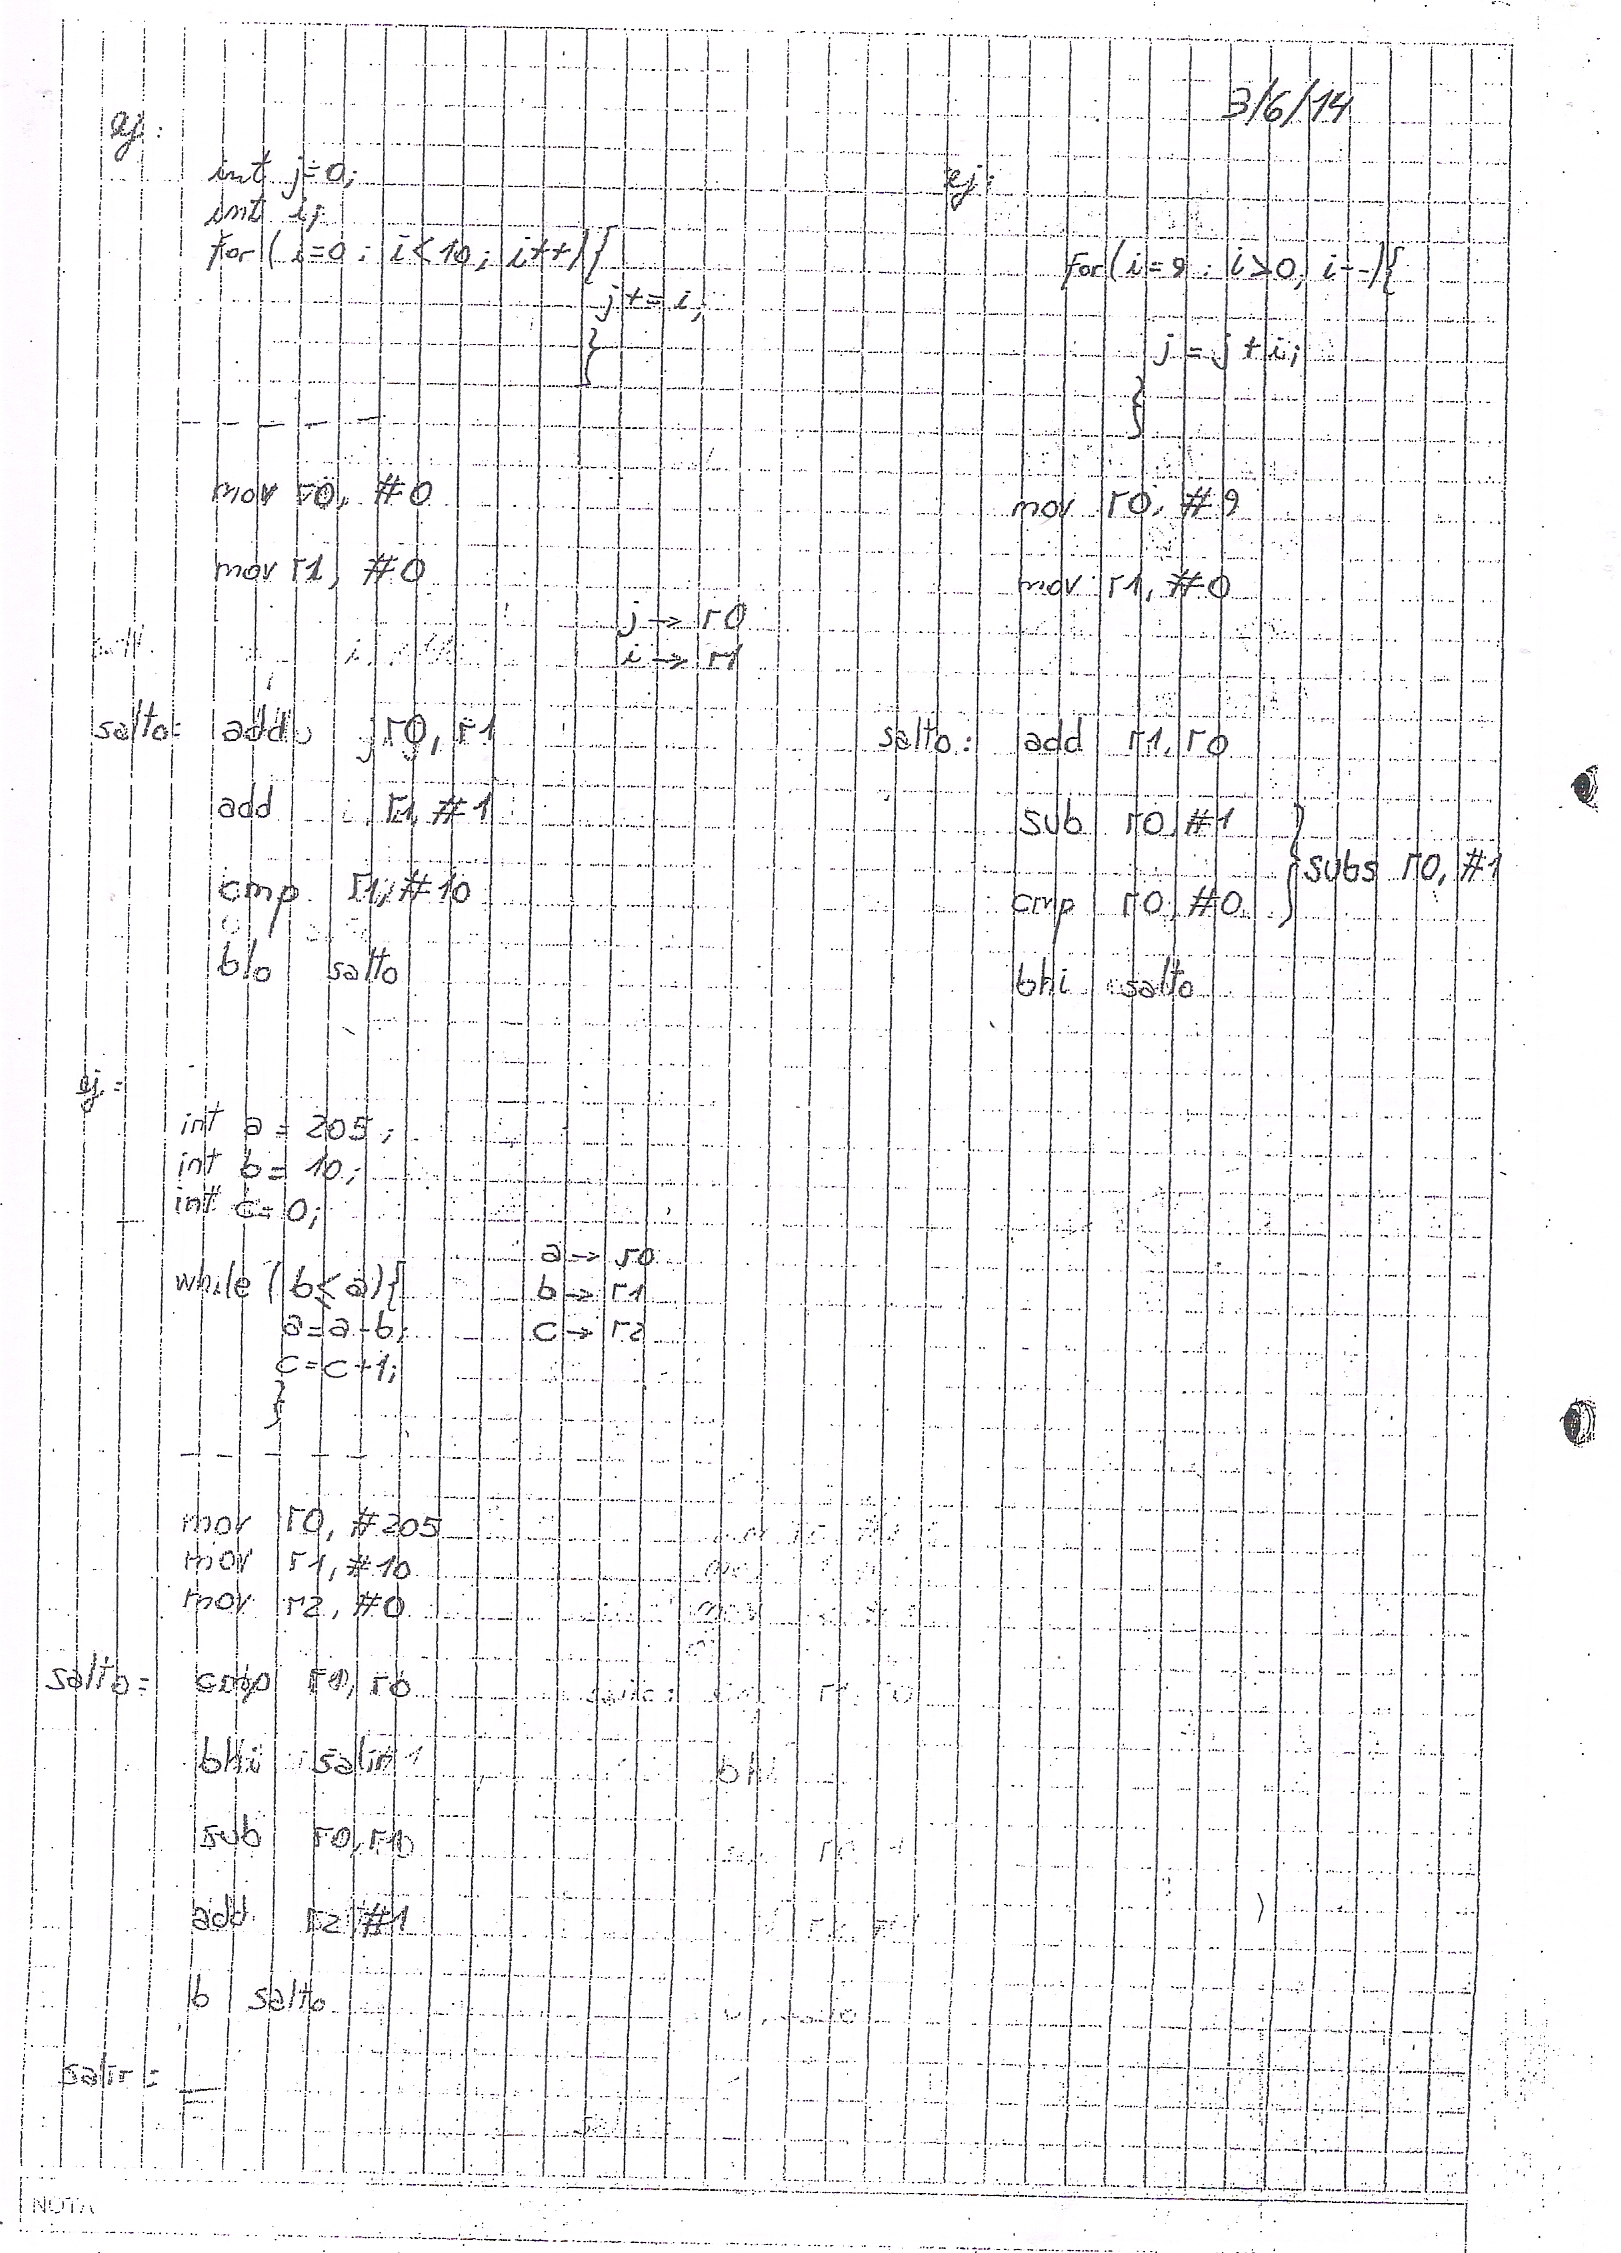 3/6/14
ej:
int j=0;
int i;
for (i=0; i<10; i++){
j+=i;
}
mov r0, #0
mov r1, #0
j → r0
i → r1
salto: add r0, r1
add r1, #1
cmp r1, #10
blo salto
ej:
for (i=9; i>0; i--){
j=j+i;
}
mov r0, #9
mov r1, #0
salto: add r1, r0
sub r0, #1
cmp r0, #0
} subs r0, #1
bhi salto
ej:
int a=205;
int b=10;
int c=0;
while (b<a){
a=a-b;
c=c+1;
}
a → r0
b → r1
c → r2
mov r0, #205
mov r1, #10
mov r2, #0
salto: cmp r1, r0
bhi salir
sub r0, r1
add r2, #1
b salto
salir:
NOTA